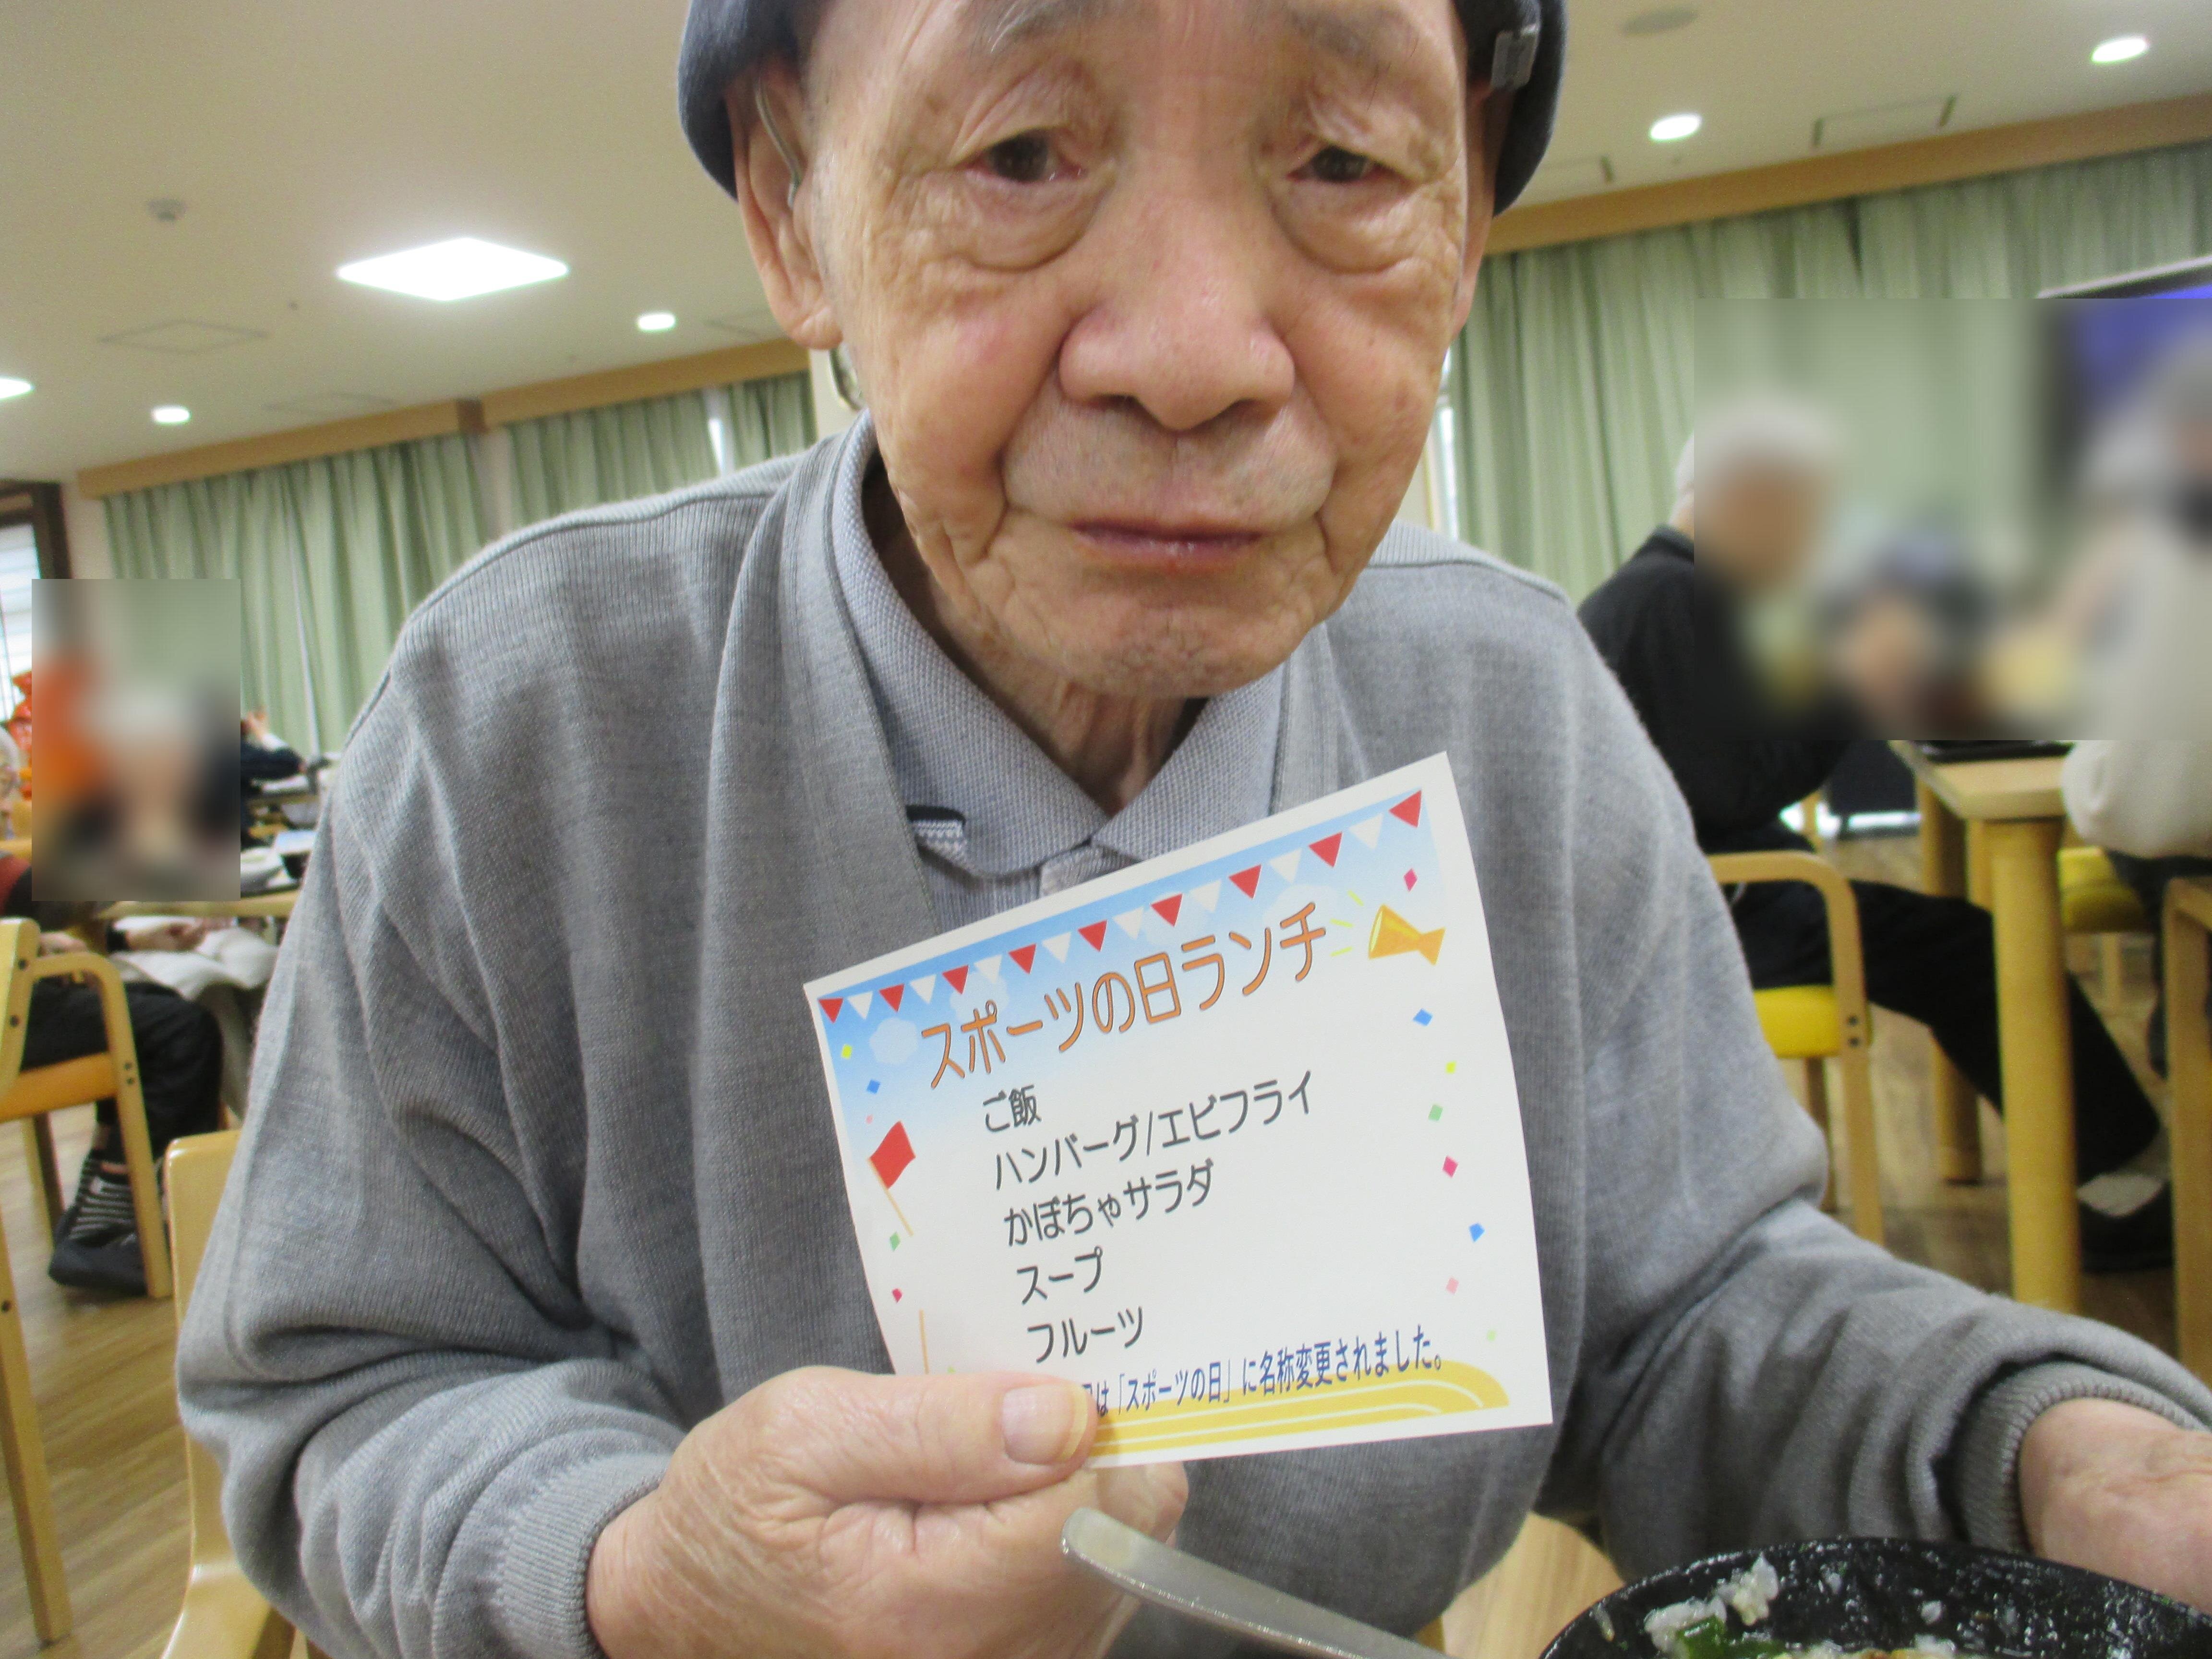 スポーツの日ランチ
ご飯
ハンバーグ/エビフライ
かぼちゃサラダ
スープ
フルーツ
は「スポーツの日」に名称変更されました。